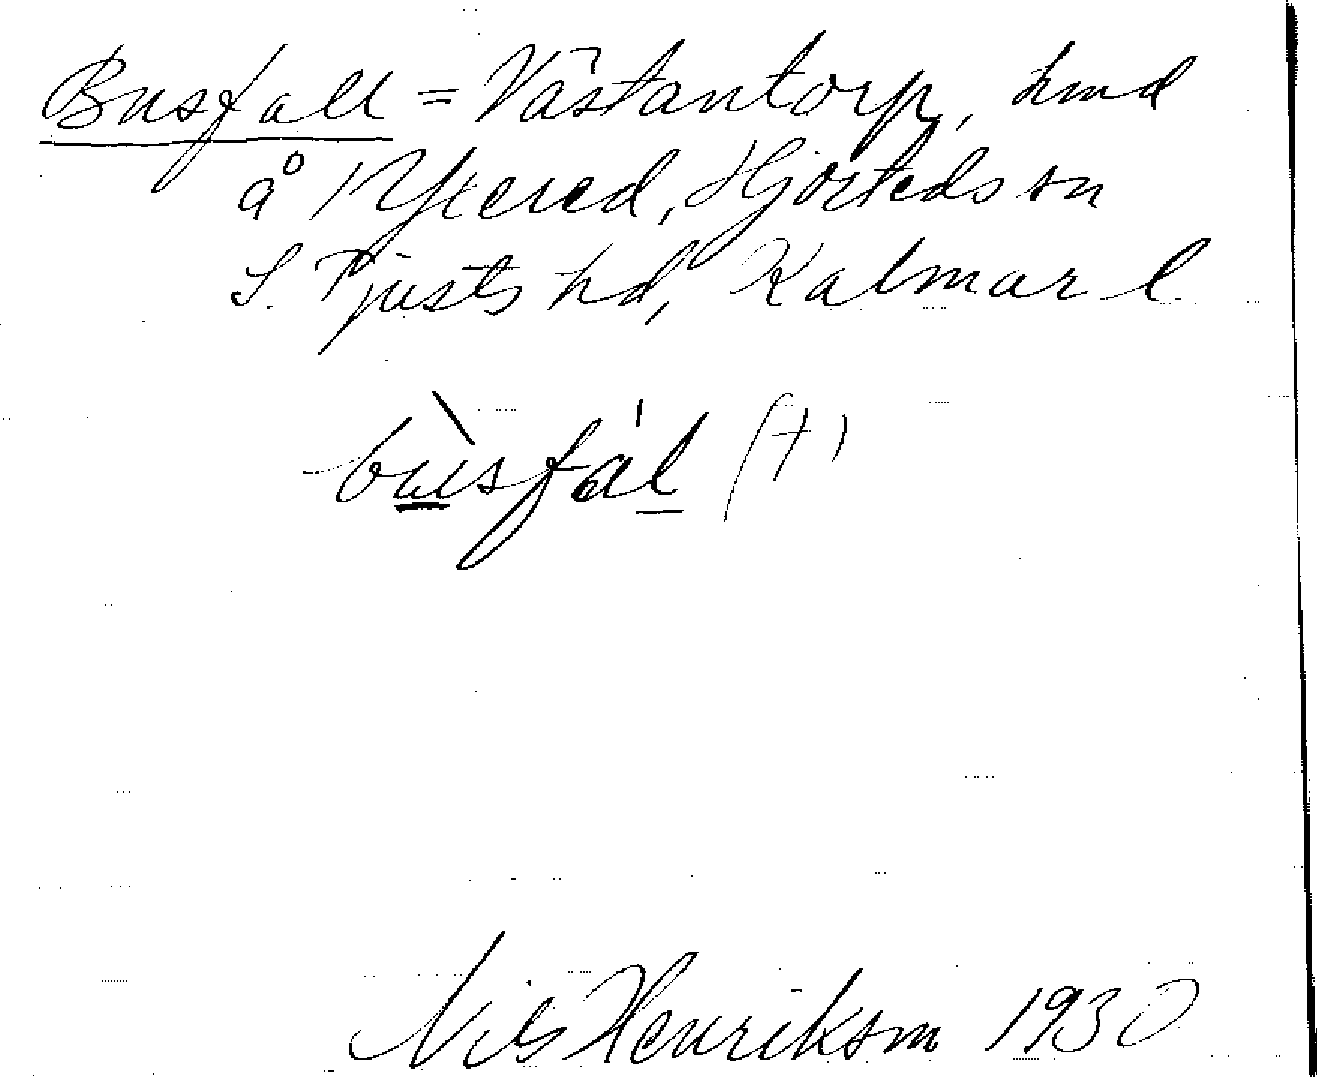 Busfall = Västantorp, hmd
å Ytered, Hjorteds sn
S. Tjusts hd, Kalmar l
bu̲sfal̲ (+)
Nils Henrikson 1930